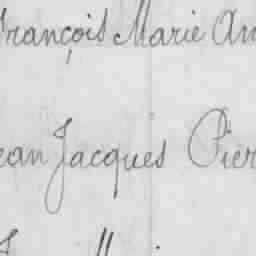 François Marie An
ean Jacques Pier